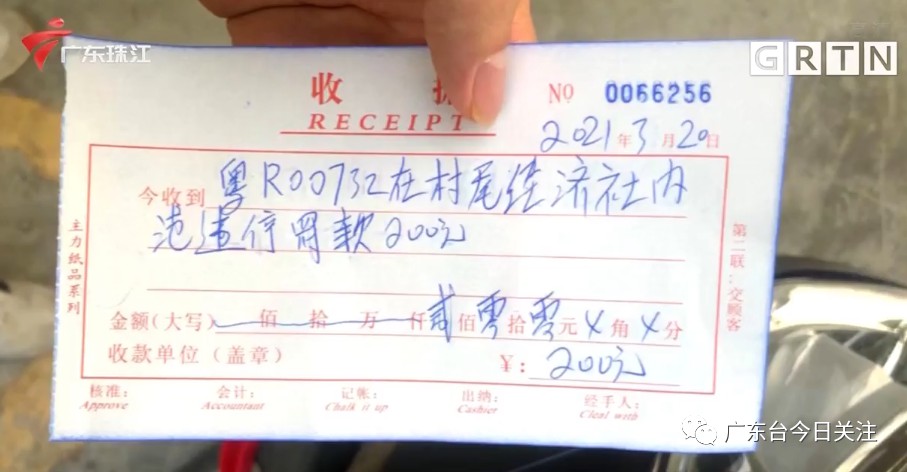 广东珠江
GRTN
收 据
NO 0066256
RECEIPT
2021年3月20日
今收到 粤R00732在村尾经济社内
违停罚款200元
主力纸品系列
第二联:交顾客
金额(大写) 佰拾万仟贰佰零拾零元 角 分
收款单位(盖章) ¥:200元
核准: 会计: 记帐: 出纳: 经手人:
Approve Accountant Chalk it up Cashier Cleal with
广东台今日关注